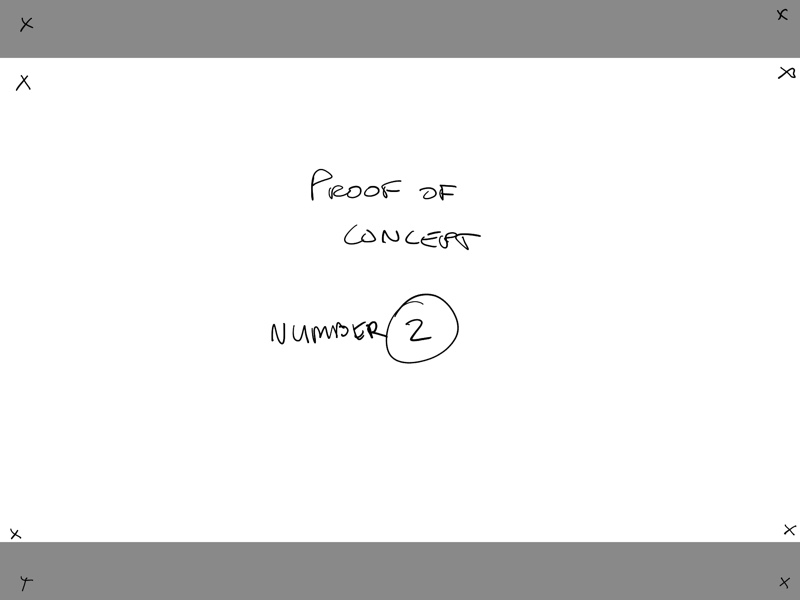 x x
x x
PROOF OF
CONCEPT
NUMBER 2
x x
x x